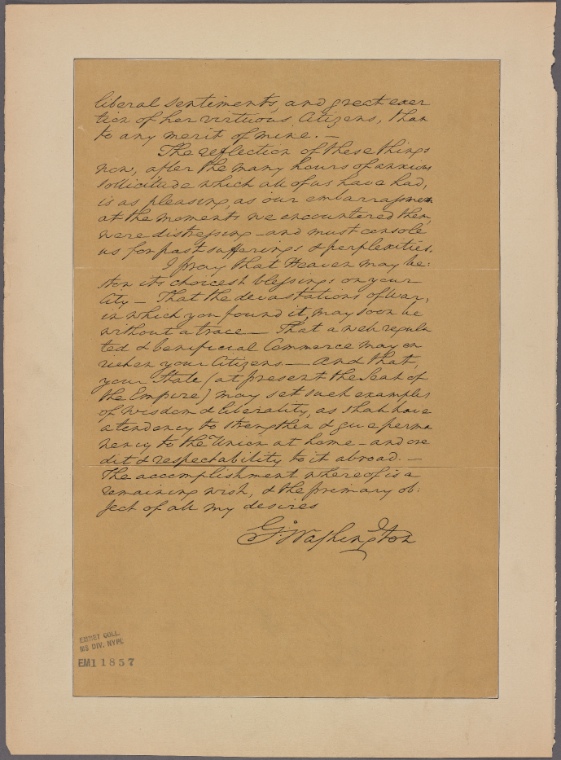 liberal sentiments, and great exer
tion of her virtuous Citizens, than
to any merit of mine. —
The reflection of these things
now, after the many hours of anxious
sollicitude which all of us have had,
is as pleasing as our embarrassments
at the moments we encountered them,
were distressing – and must console
us for past sufferings & perplexities.
I pray that Heaven may be
stow its choicest blessings on your
City — That the devastations of War,
in which you found it, may soon be
without a trace — That a well regula
ted & beneficial Commerce may en
richen your Citizens — And that,
your State (at present the Seat of
the Empire) may set such examples
of Wisdom & liberality, as shall have
a tendency to strengthen & give perma
nency to the Union at home – and cre
dit & respectability to it abroad. —
The accomplishment whereof is a
remaining wish, & the primary ob-
ject of all my desires
G:Washington
EMMET COLL.
MS DIV. NYPL
EM11857